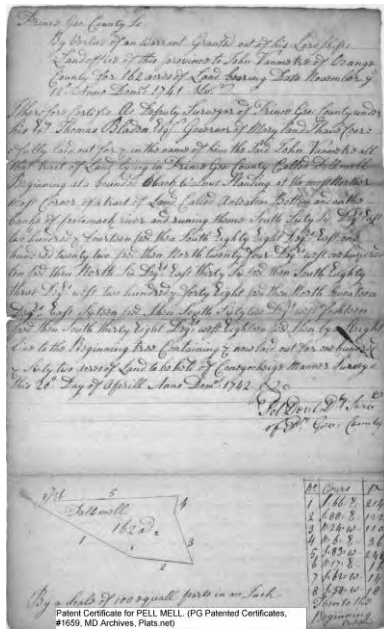 Prince Geo County Ss.
By Vertue of an Warrant Granted out of his Lordships
Landoffice of this province to John Vanmetre of Orange
County for 162 acres of Land bearing Date November ye
Anno Domi. 1741
I therefore Certifie As Deputy Surveyor of Prince Geo: County under
his Thomas Bladen Esq Governor of Maryland have Care=
=fully laid out for & in the name of him the said John Vanmetre all
that tract of Land lying in Prince Geo County Called
Beginning at a bounded Standing at the most Norther
West Corner of a tract of Land Called Antietam Bottom and on the
banks of potomack river and running thence South Sixty Six Degs East
two hundred & fourteen pos then South Eighty Eight Degs East one
hundred twenty two pos then North twenty four Degs west one hundred
ten pos then North Six Degs East thirty Six pos then South Eighty
three Degs west two hundred & forty Eight pos then North Seventeen
Degs East Sixteen pos then South Sixty two Degs west fourteen
pos then South thirty Eight Degs west Eighteen pos then by a Straight
line to the Beginning tree Containing & now laid out for one hundred
& Sixty two acres of Land to be held of Conegocheige Manner Surveyed
this 20th Day of Aprill Anno Domi. 1742
of Pr. Geo: County
8 7 6 5 4
Pellmell
162 acs
1 2 3
No Cours ps
1 S.66.E 214
2 S.88.E 122
3 N.24.W 110
4 N.6.E 36
5 S.83.W 248
6 N.17.E 16
7 S.62.W 14
8 S.38.W 18
Then to the
Beginning
By a Scale of 100 equall parts in an Inch
Patent Certificate for PELL MELL. (PG Patented Certificates,
#1659, MD Archives, Plats.net)